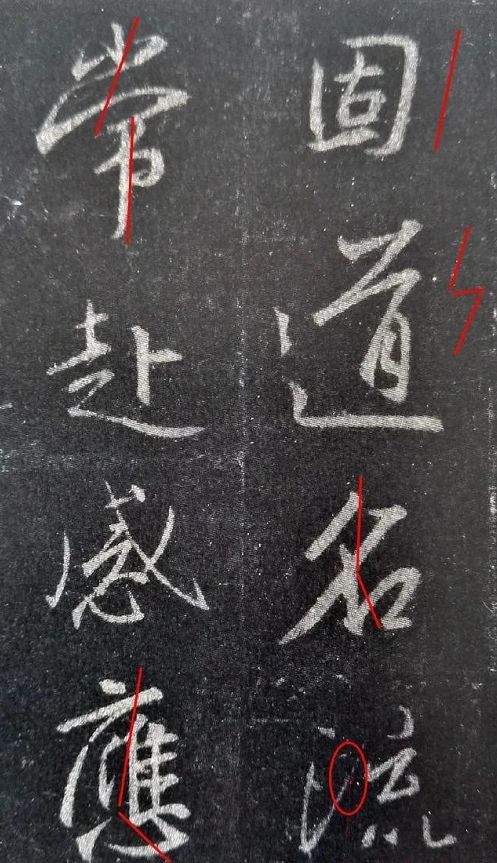 固道名流
常赴感應